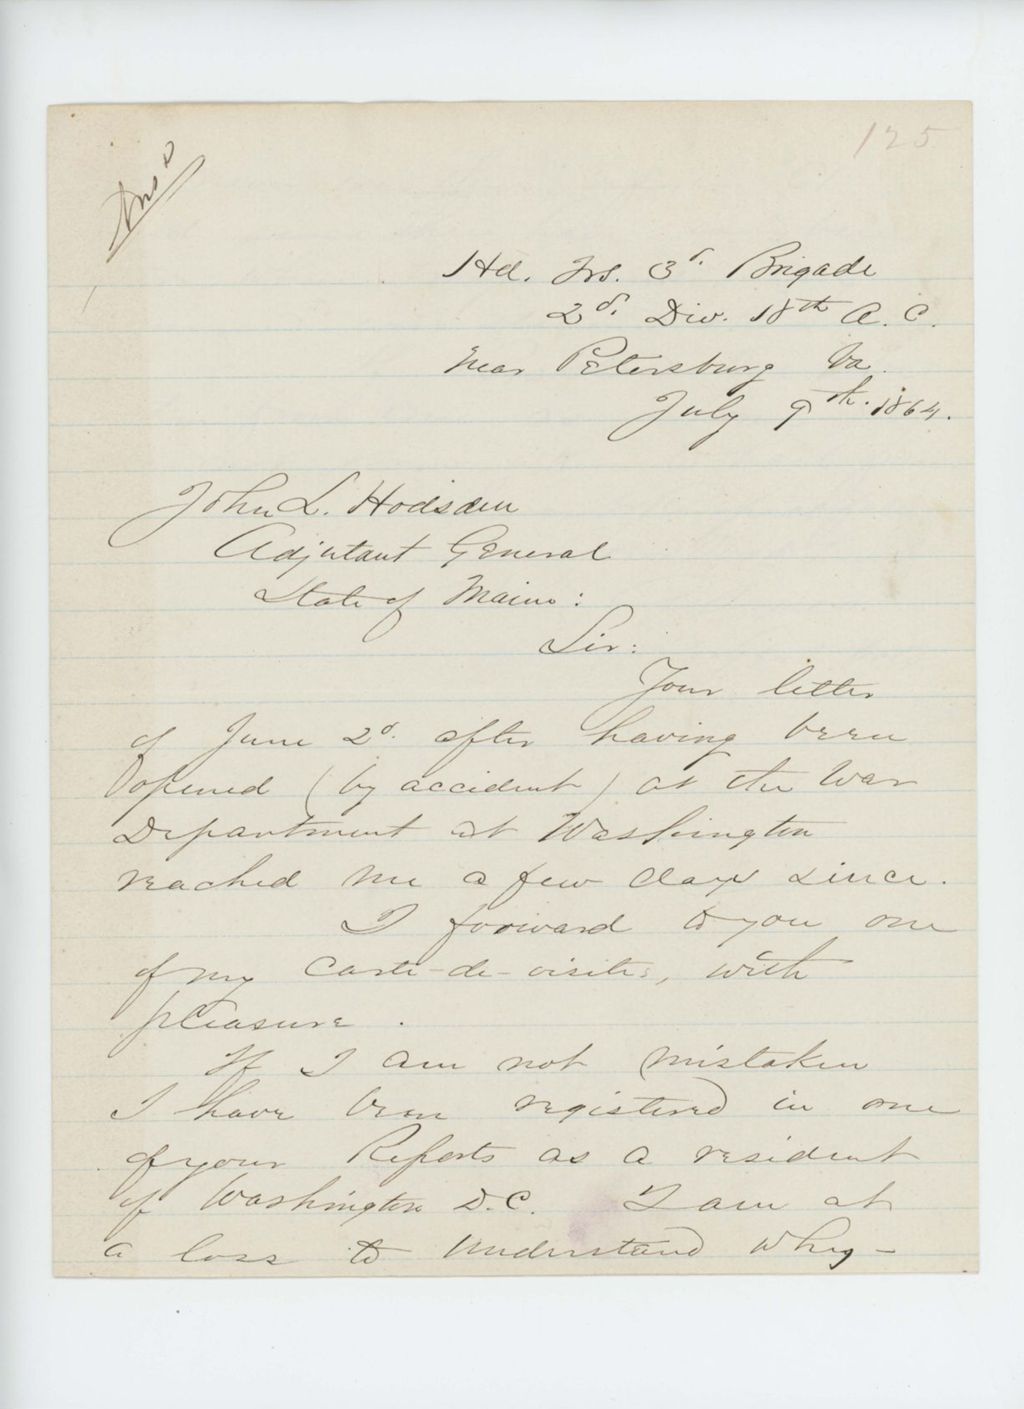 125
Ansd
Hd. Qrs. 3d. Brigade
2d. Div. 18th A. C.
Near Petersburg Va.
July 9th. 1864.
John L. Hodsdon
Adjutant General
State of Maine:
Sir:
Your letter
of June 2d. after having been
opened (by accident) at the War
Department at Washington
reached me a few days since.
I forward to you one
of my carte-de-visites, with
pleasure.
If I am not mistaken
I have been registered in one
of your Reports as a resident
of Washington D.C. I am at
a loss to understand why-